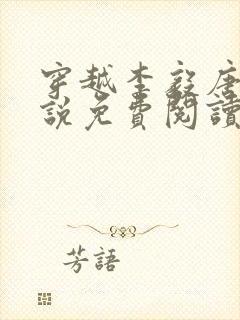 穿越李毅唐
說免費閱讀
芳語